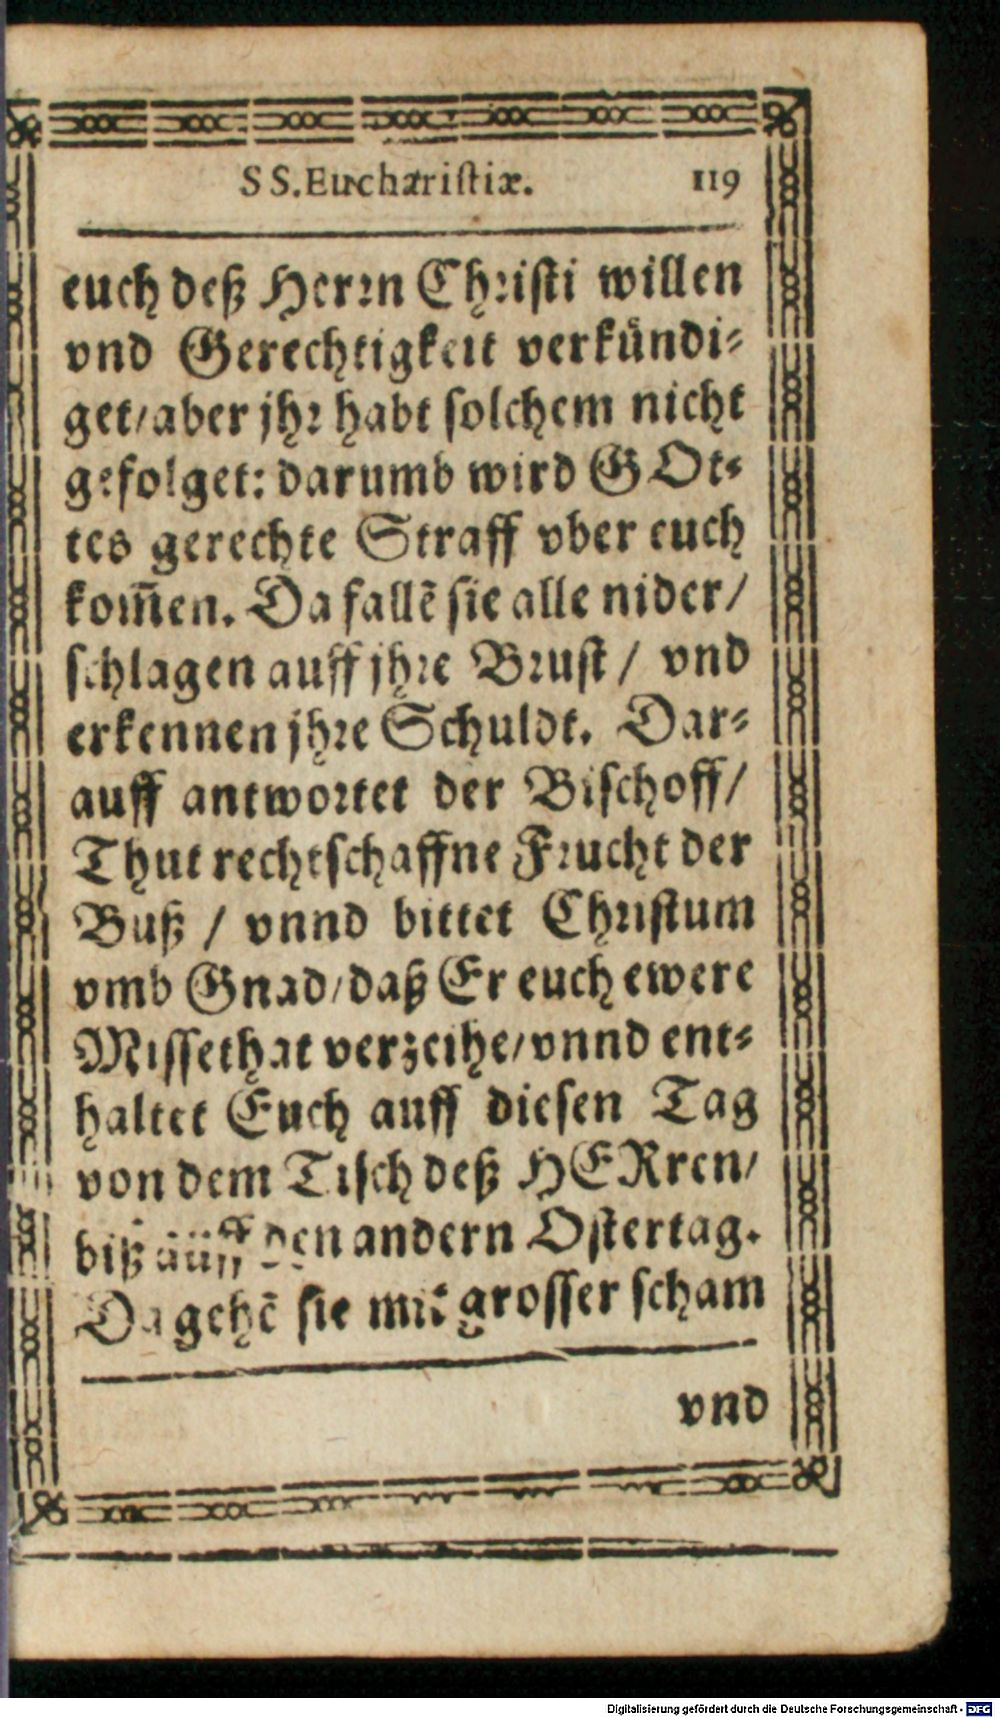 SS. Eucharistiæ. 119
euch deß Herrn Christi willen
vnd Gerechtigkeit verkündi-
get/aber jhr habt solchem nicht
gefolget: darumb wird GOt-
tes gerechte Straff vber euch
kom̄en. Da fallē sie alle nider/
schlagen auff jhre Brust / vnd
erkennen jhre Schuldt. Dar-
auff antwortet der Bischoff/
Thut rechtschaffne Frucht der
Buß / vnnd bittet Christum
vmb Gnad/daß Er euch ewere
Missethat verzeihe/vnnd ent-
haltet Euch auff diesen Tag
von dem Tisch deß HERren/
biß auff den andern Ostertag.
Da gehē sie mit grosser scham
vnd
Digitalisierung gefördert durch die Deutsche Forschungsgemeinschaft - DFG